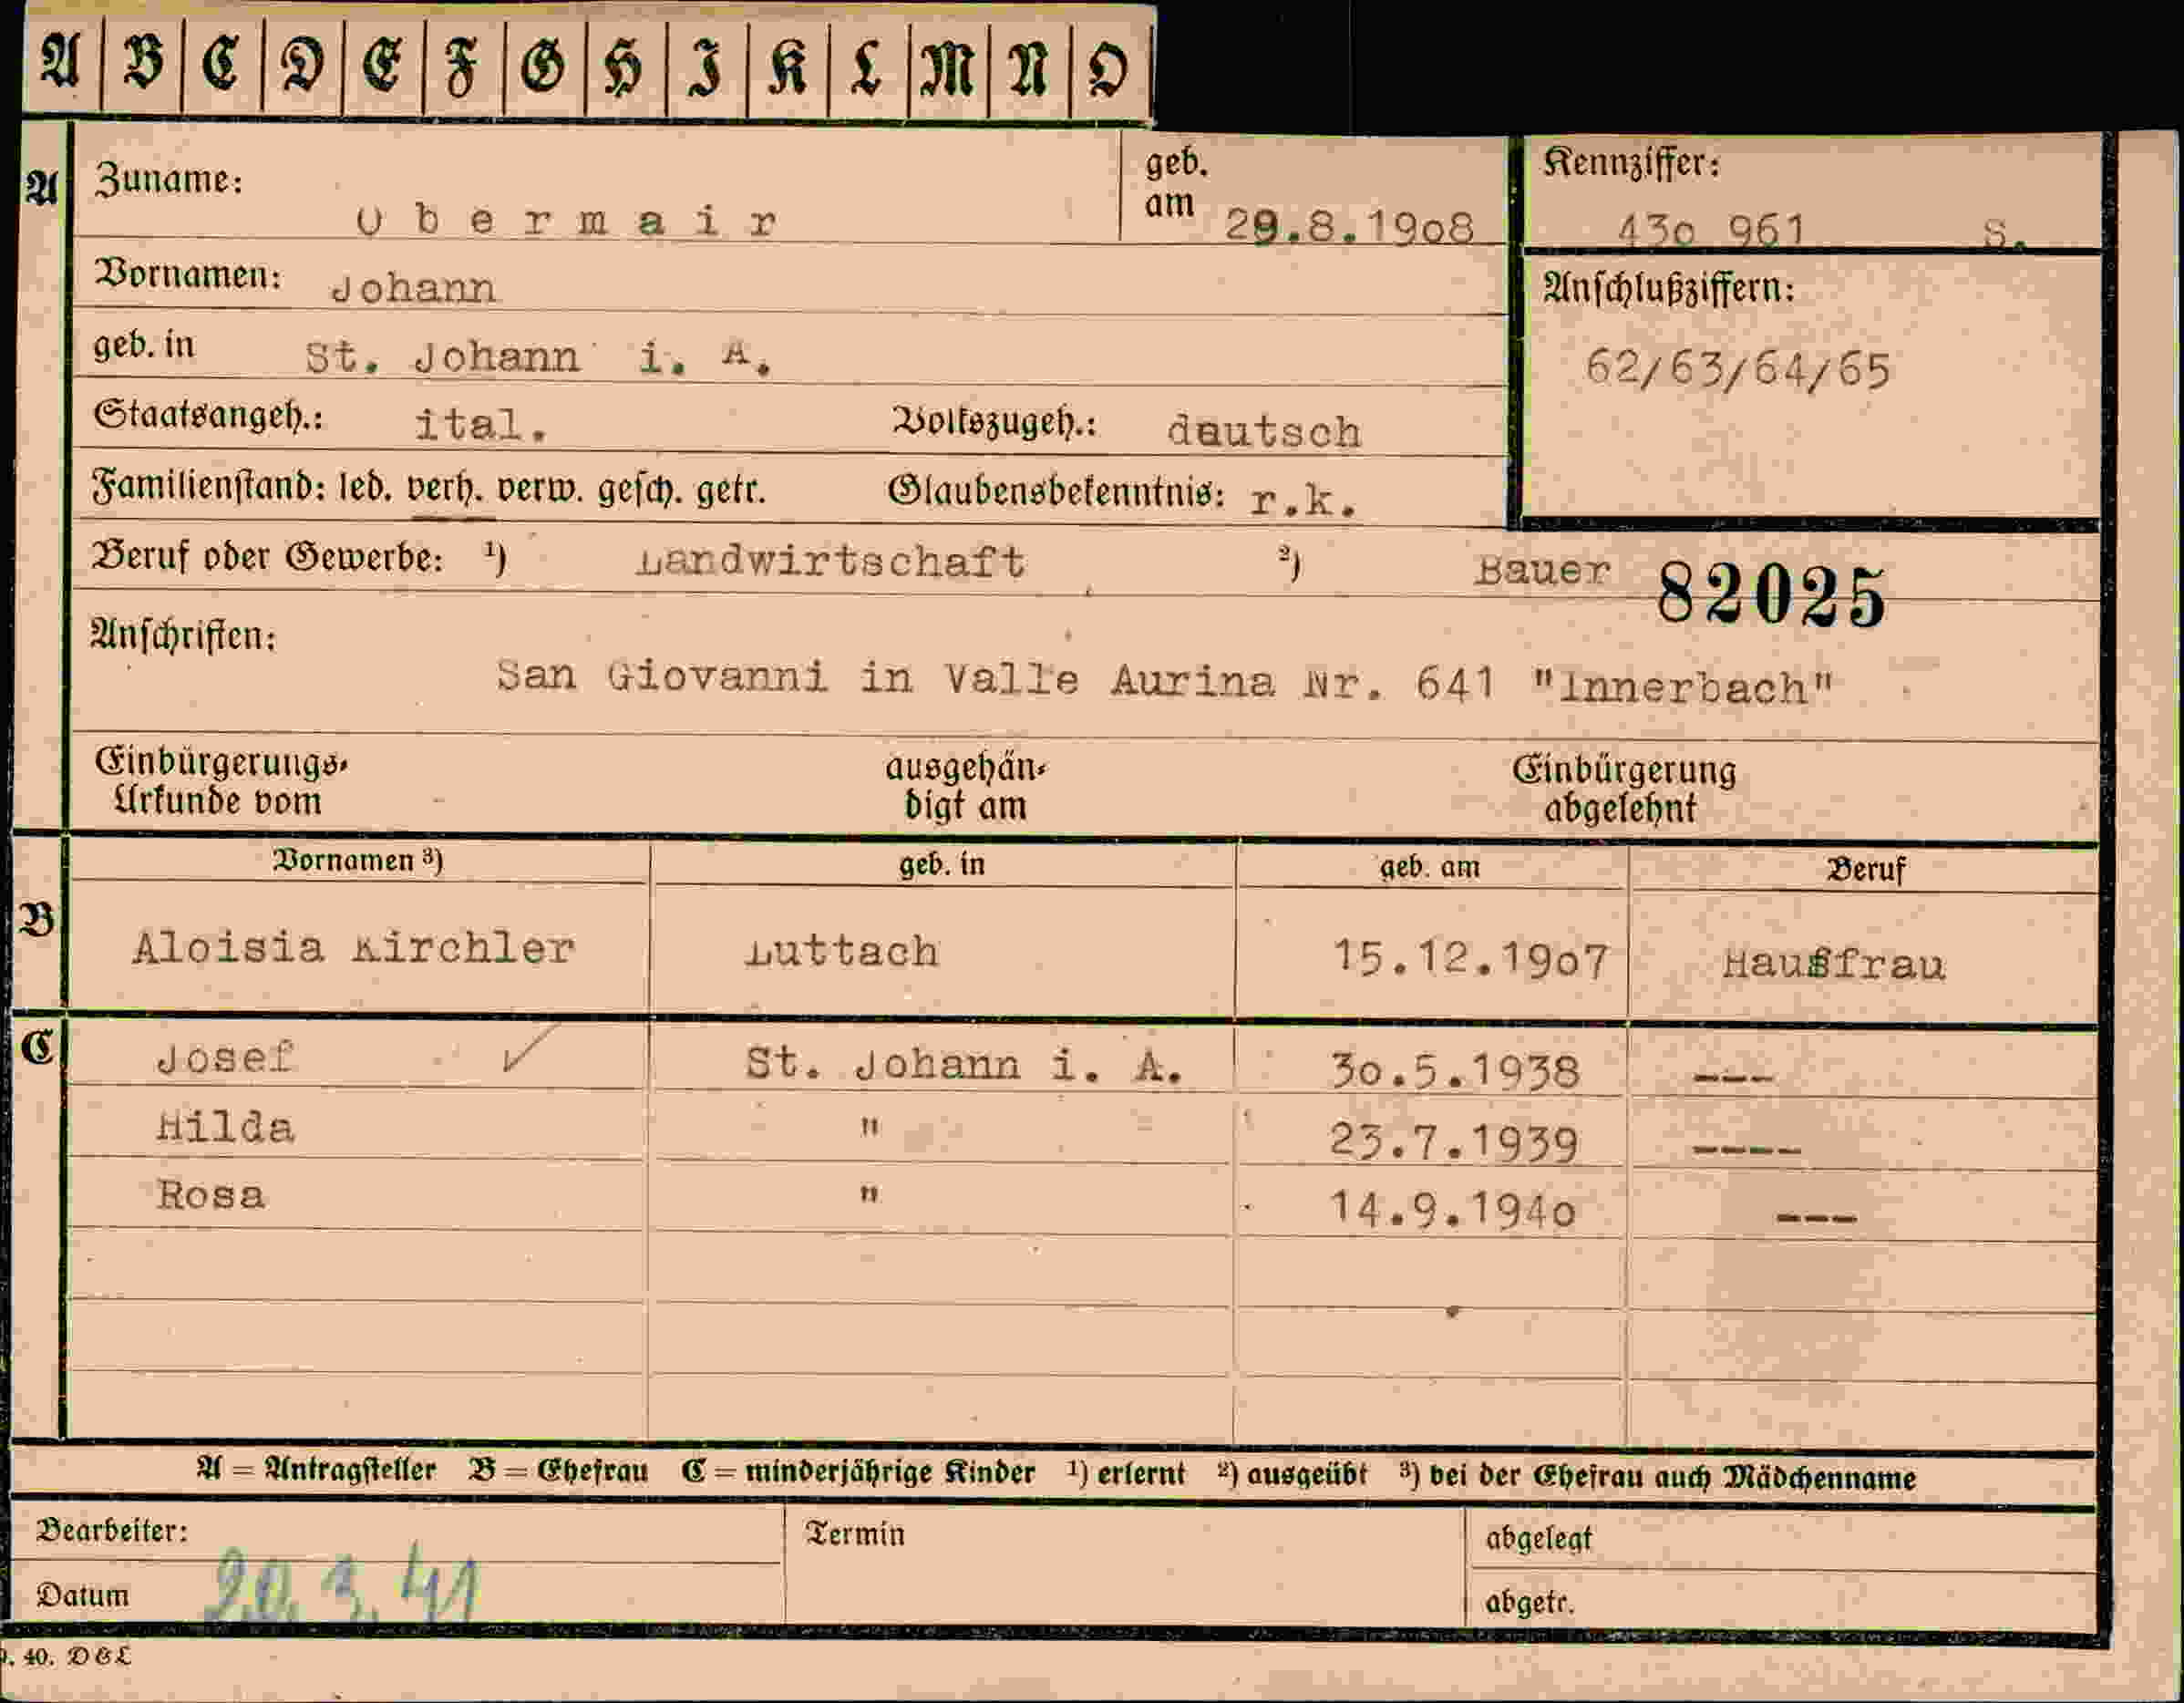 A B C D E F G H I K L M N O
A Zuname: Obermair geb. am 29.8.1908 Kennziffer: 430 961 S.
Vornamen: Johann Anschlußziffern:
geb. in St. Johann i. A. 62/63/64/65
Staatsangeh.: ital. Volkszugeh.: deutsch
Familienstand: led. verh. verw. gesch. getr. Glaubensbekenntnis: r.k.
Beruf oder Gewerbe: 1) Landwirtschaft 2) Bauer 82025
Anschriften:
San Giovanni in Valle Aurina Nr. 641 "Innerbach"
Einbürgerungs- ausgehän- Einbürgerung
Urkunde vom digt am abgelehnt
Vornamen 3) geb. in geb. am Beruf
B Aloisia Kirchler Luttach 15.12.1907 Hausfrau
C Josef ✓ St. Johann i. A. 30.5.1938 ---
Hilda " 23.7.1939 ----
Rosa " 14.9.1940 ---
A = Antragsteller B = Ehefrau C = minderjährige Kinder 1) erlernt 2) ausgeübt 3) bei der Ehefrau auch Mädchenname
Bearbeiter: Termin abgelegt
Datum 20.3.41 abgetr.
40. D & L